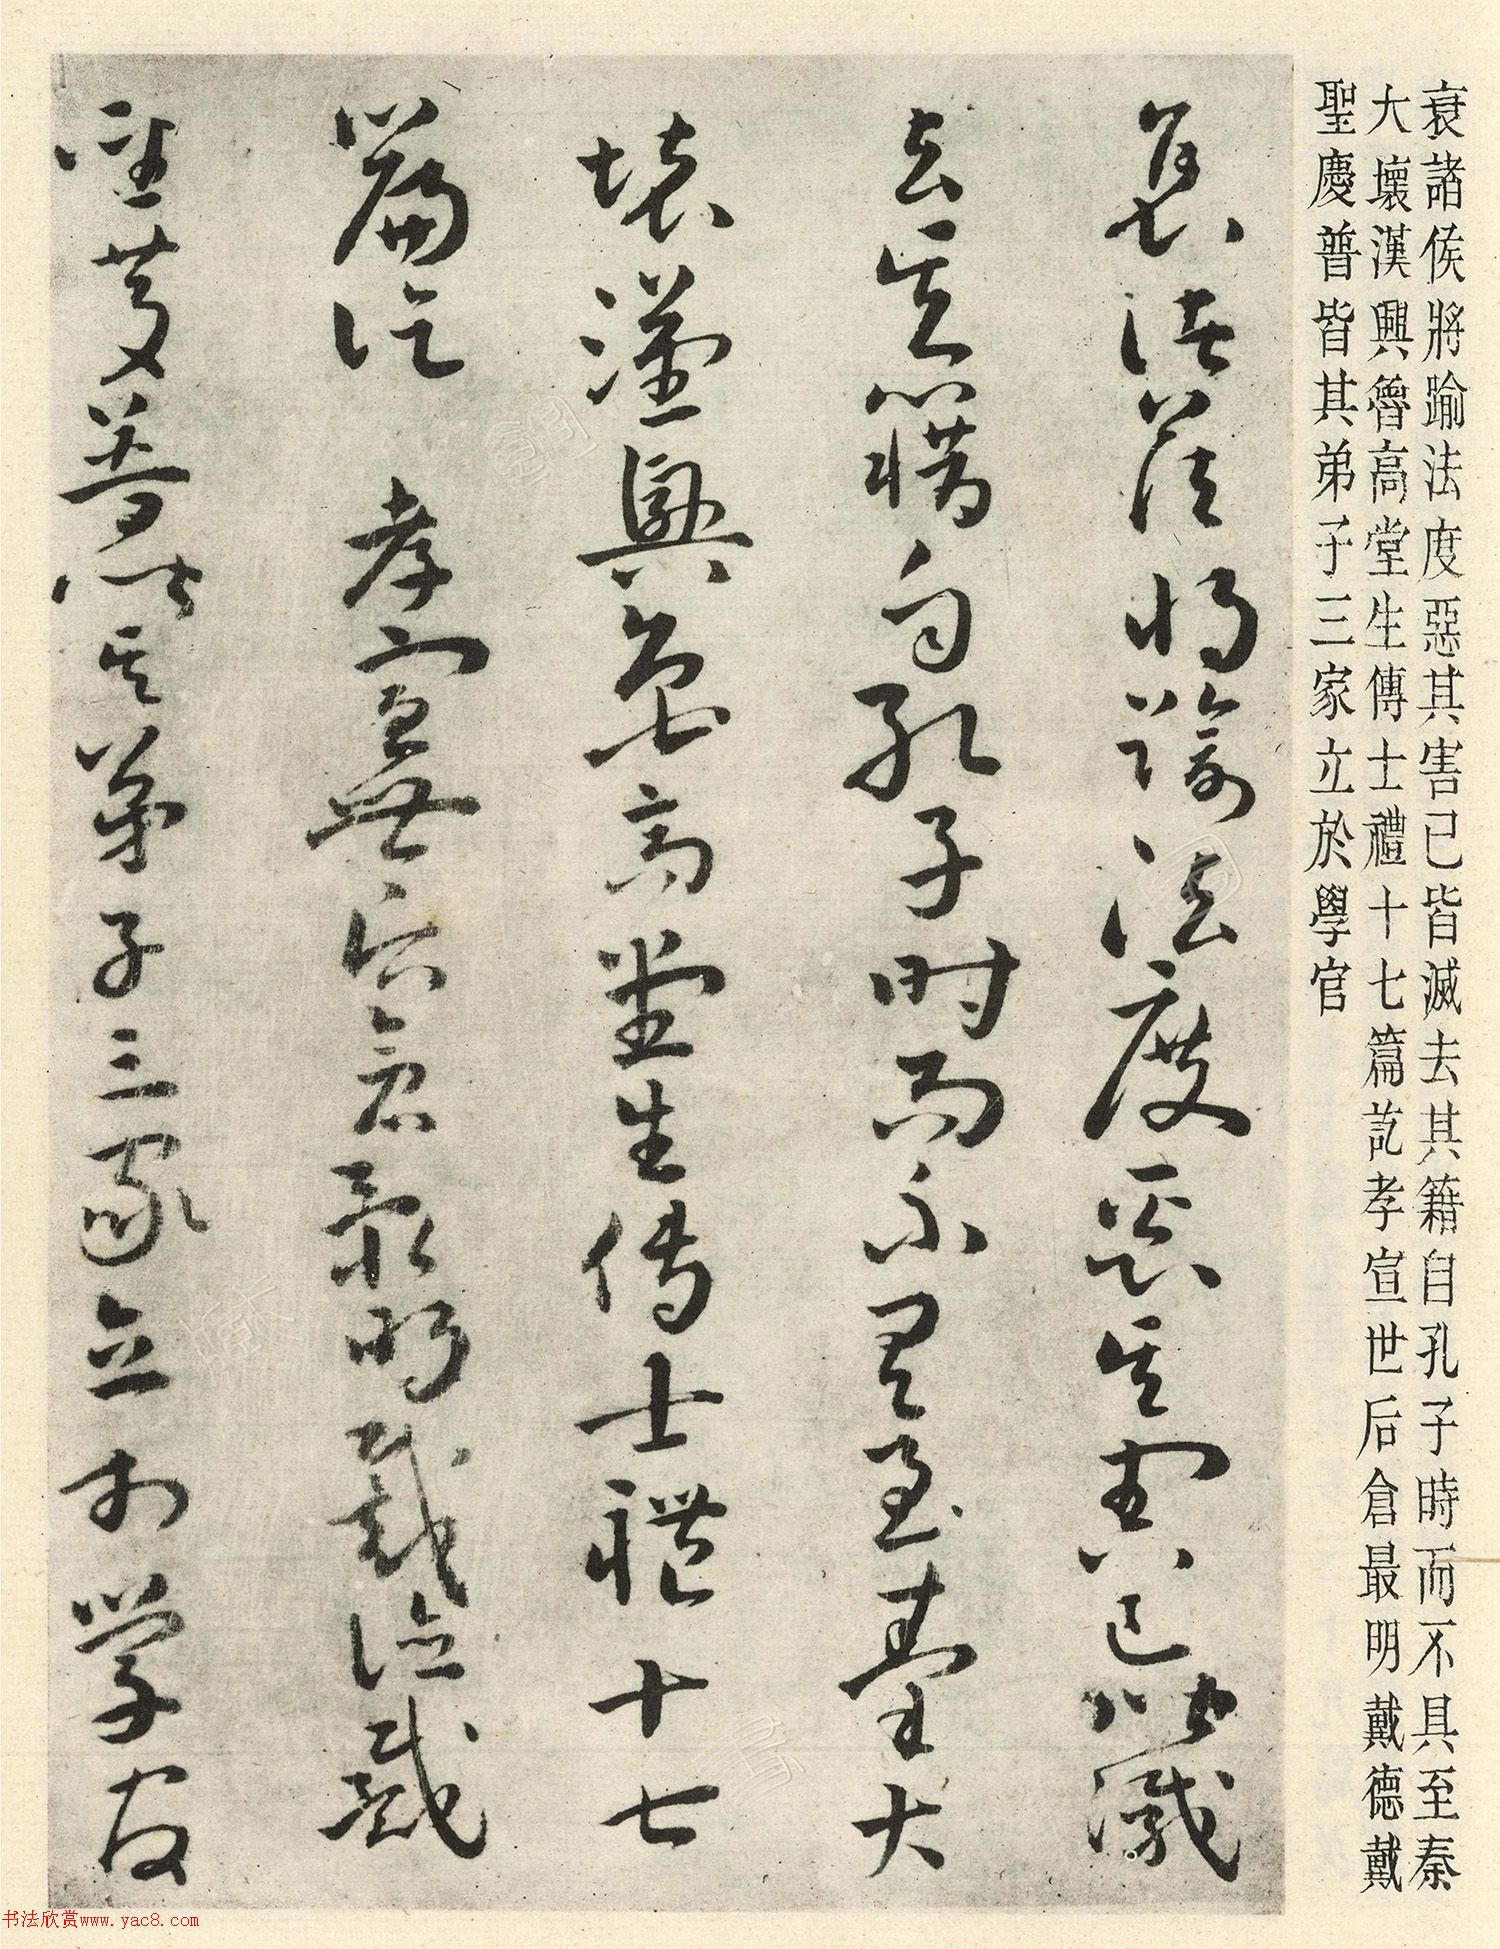 衰諸侯將踰法度惡其害己皆滅去其籍自孔子時而不具至秦
大壞漢興魯高堂生傳士禮十七篇訖孝宣世后倉最明戴德戴
聖慶普皆其弟子三家立於學官
衰諸侯將踰法度惡其害己皆滅
去其籍自孔子時而不具至秦大
壞漢興魯高堂生傳士禮十七
篇訖孝宣世后倉最明戴德戴
聖慶普皆其弟子三家立於學官
书法欣赏www.yac8.com